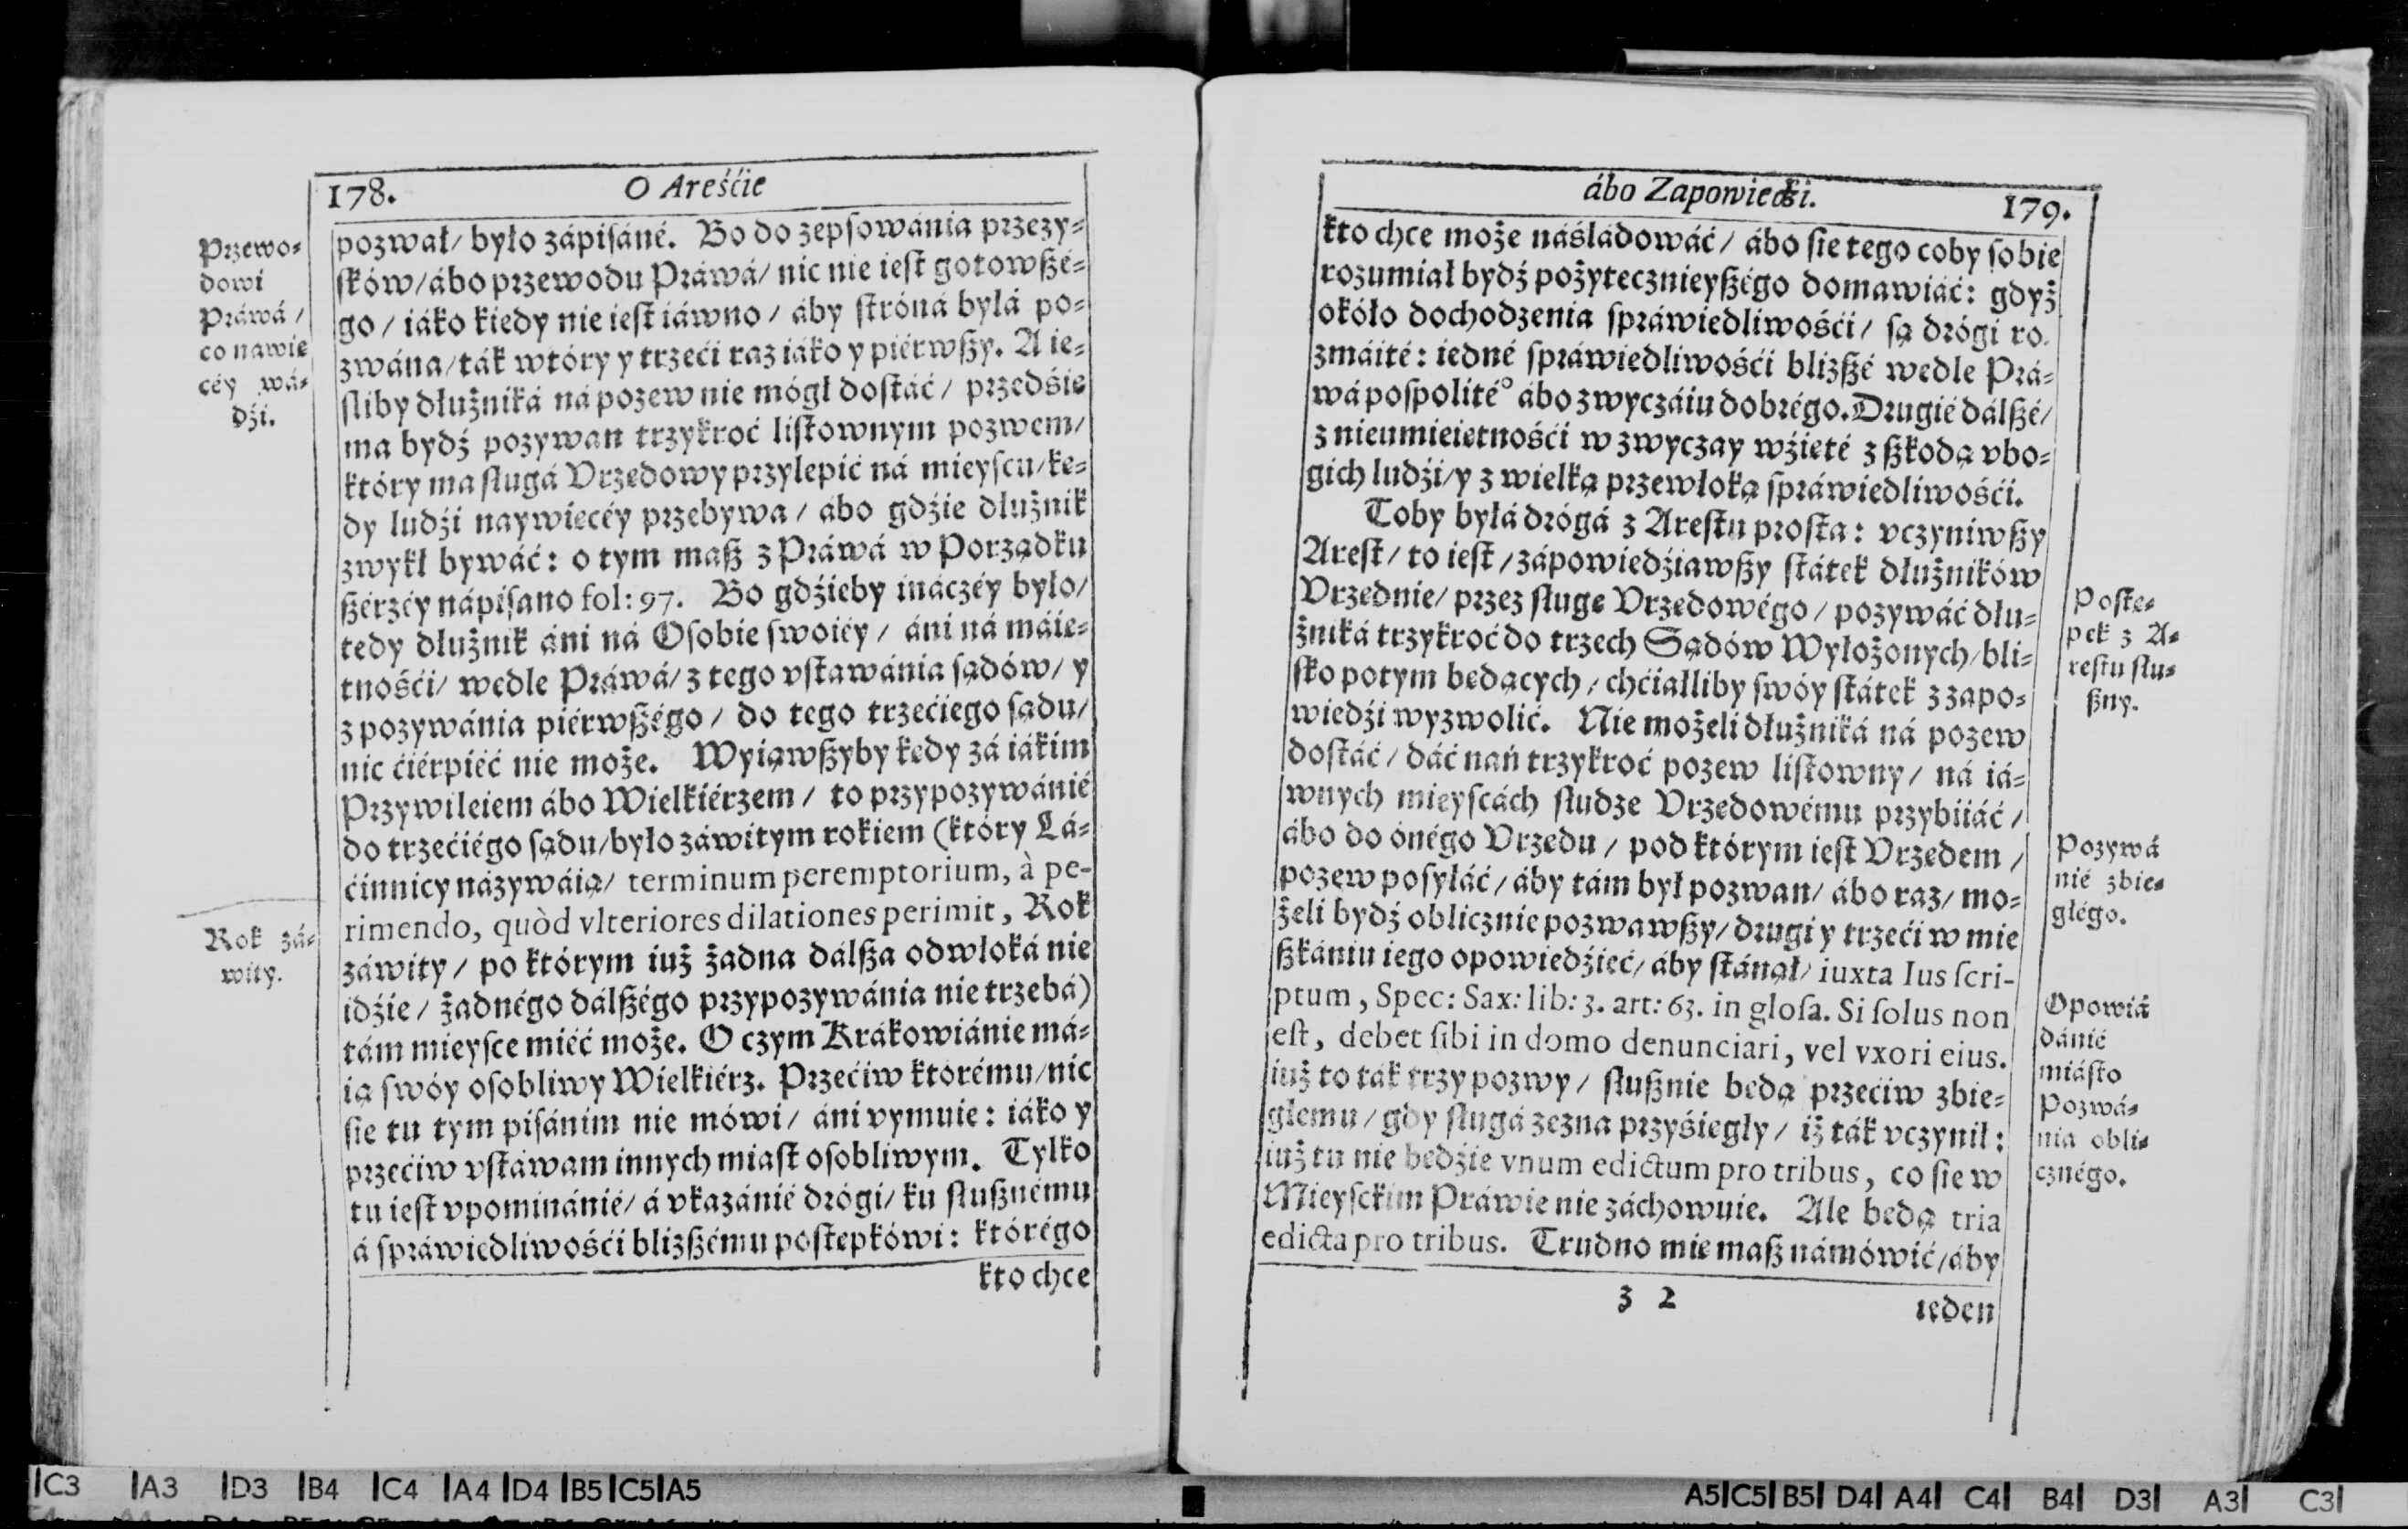 178. O Areśćie
Przewo-
dowi
Práwá /
co nawie
céy wá-
dźi.
pozwał / było zápisáné. Bo do zepsowánia przezy-
sków / ábo przewodu Práwá / nic nie iest gotowszé-
go / iáko kiedy nie iest iáwno / áby stróná bylá po-
zwána / ták wtóry y trzeći raz iáko y piérwszy. A ie-
sliby dłużniká ná pozew nie mógł dostáć / przedśie
ma bydź pozywan trzykroć listownym pozwem /
który ma sługá Vrzedowy przylepić ná mieyscu / ke-
dy ludźi naywiecéy przebywa / ábo gdźie dlużnik
zwykl bywáć: o tym masz z Práwá w Porządku
szérzéy nápisano fol: 97. Bo gdźieby ináczéy było /
tedy dłużnik áni ná Osobie swoiéy / áni ná máie-
tnośći / wedle Práwá / z tego vstawánia sądów / y
z pozywánia piérwszégo / do tego trzećiego sądu /
nic ćiérpiéć nie może. Wyiąwszyby kedy zá iákim
Przywileiem ábo Wielkiérzem / to przypozywánié
do trzećiégo sądu / było záwitym rokiem (który Lá-
ćinnicy názywáią / terminum peremptorium, à pe-
rimendo, quòd vlteriores dilationes perimit, Rok
záwity / po którym iuż żadna dálsza odwłoká nie
idźie / żadnégo dálszégo przypozywánia nie trzebá)
tám mieysce miéć może. O czym Krákowiánie má-
ią swóy osobliwy Wielkiérz. Przećiw którému / nic
sie tu tym pisánim nie mówi / áni vymuie: iáko y
przećiw vstáwam innych miast osobliwym. Tylko
tu iest vpominánié / á vkazánié drógi / ku słusznému
á spráwiedliwośći bliższému postepkówi: którégo
Rok zá-
wity.
kto chce
ábo Zapowiedźi. 179.
kto chce może náśládowáć / ábo sie tego coby sobie
rozumiał bydź pożytecznieyszégo domawiáć: gdyż
okóło dochodzenia spráwiedliwośći / są drógi ro.
zmáité: iedné spráwiedliwośći bliższé wedle Prá-
wá pospolité° ábo zwyczáiu dobrégo. Drugié dálszé /
z nieumieietnośći w zwyczay wźieté z szkodą vbo-
gich ludźi / y z wielką przewłoką spráwiedliwośći.
Toby byłá drógá z Arestu prosta: vczyniwszy
Arest / to iest / zápowiedźiawszy státek dłużników
Vrzednie / przez sługe Vrzedowégo / pozywáć dłu-
żniká trzykroć do trzech Sądów Wyłożonych / bli-
sko potym bedących / chćiałliby swóy státek z zapo-
wiedźi wyzwolić. Nie możeli dłużniká ná pozew
dostáć / dáć nań trzykroć pozew listowny / ná iá-
wnych mieyscách słudze Vrzedowému przybiiáć /
ábo do ónégo Vrzedu / pod którym iest Vrzedem /
pozew posyłáć / áby tám był pozwan / ábo raz / mo-
żeli bydź oblicznie pozwawszy / drugi y trzeći w mie
szkániu iego opowiedźieć / áby stánął / iuxta Ius scri-
ptum, Spec: Sax: lib: 3. art: 63. in glosa. Si solus non
est, debet sibi in domo denunciari, vel vxori eius.
iuż to ták trzy pozwy / słusznie bedą przećiw zbie-
głemu / gdy sługá zezna przyśiegły / iż ták vczynił:
iuż tu nie bedźie vnum edictum pro tribus, co sie w
Mieysckim Práwie nie záchowuie. Ale bedą tria
edicta pro tribus. Trudno mie masz námówić / áby
Poste-
pek z A-
restu słu-
szny.
Pozywá
nié zbie-
głégo.
Opowiá
dánié
miásto
Pozwá-
nia obli-
cznégo.
Z 2 ieden
C3 A3 D3 B4 C4 A4 D4 B5 C5 A5
A5 C5 B5 D4 A4 C4 B4 D3 A3 C3